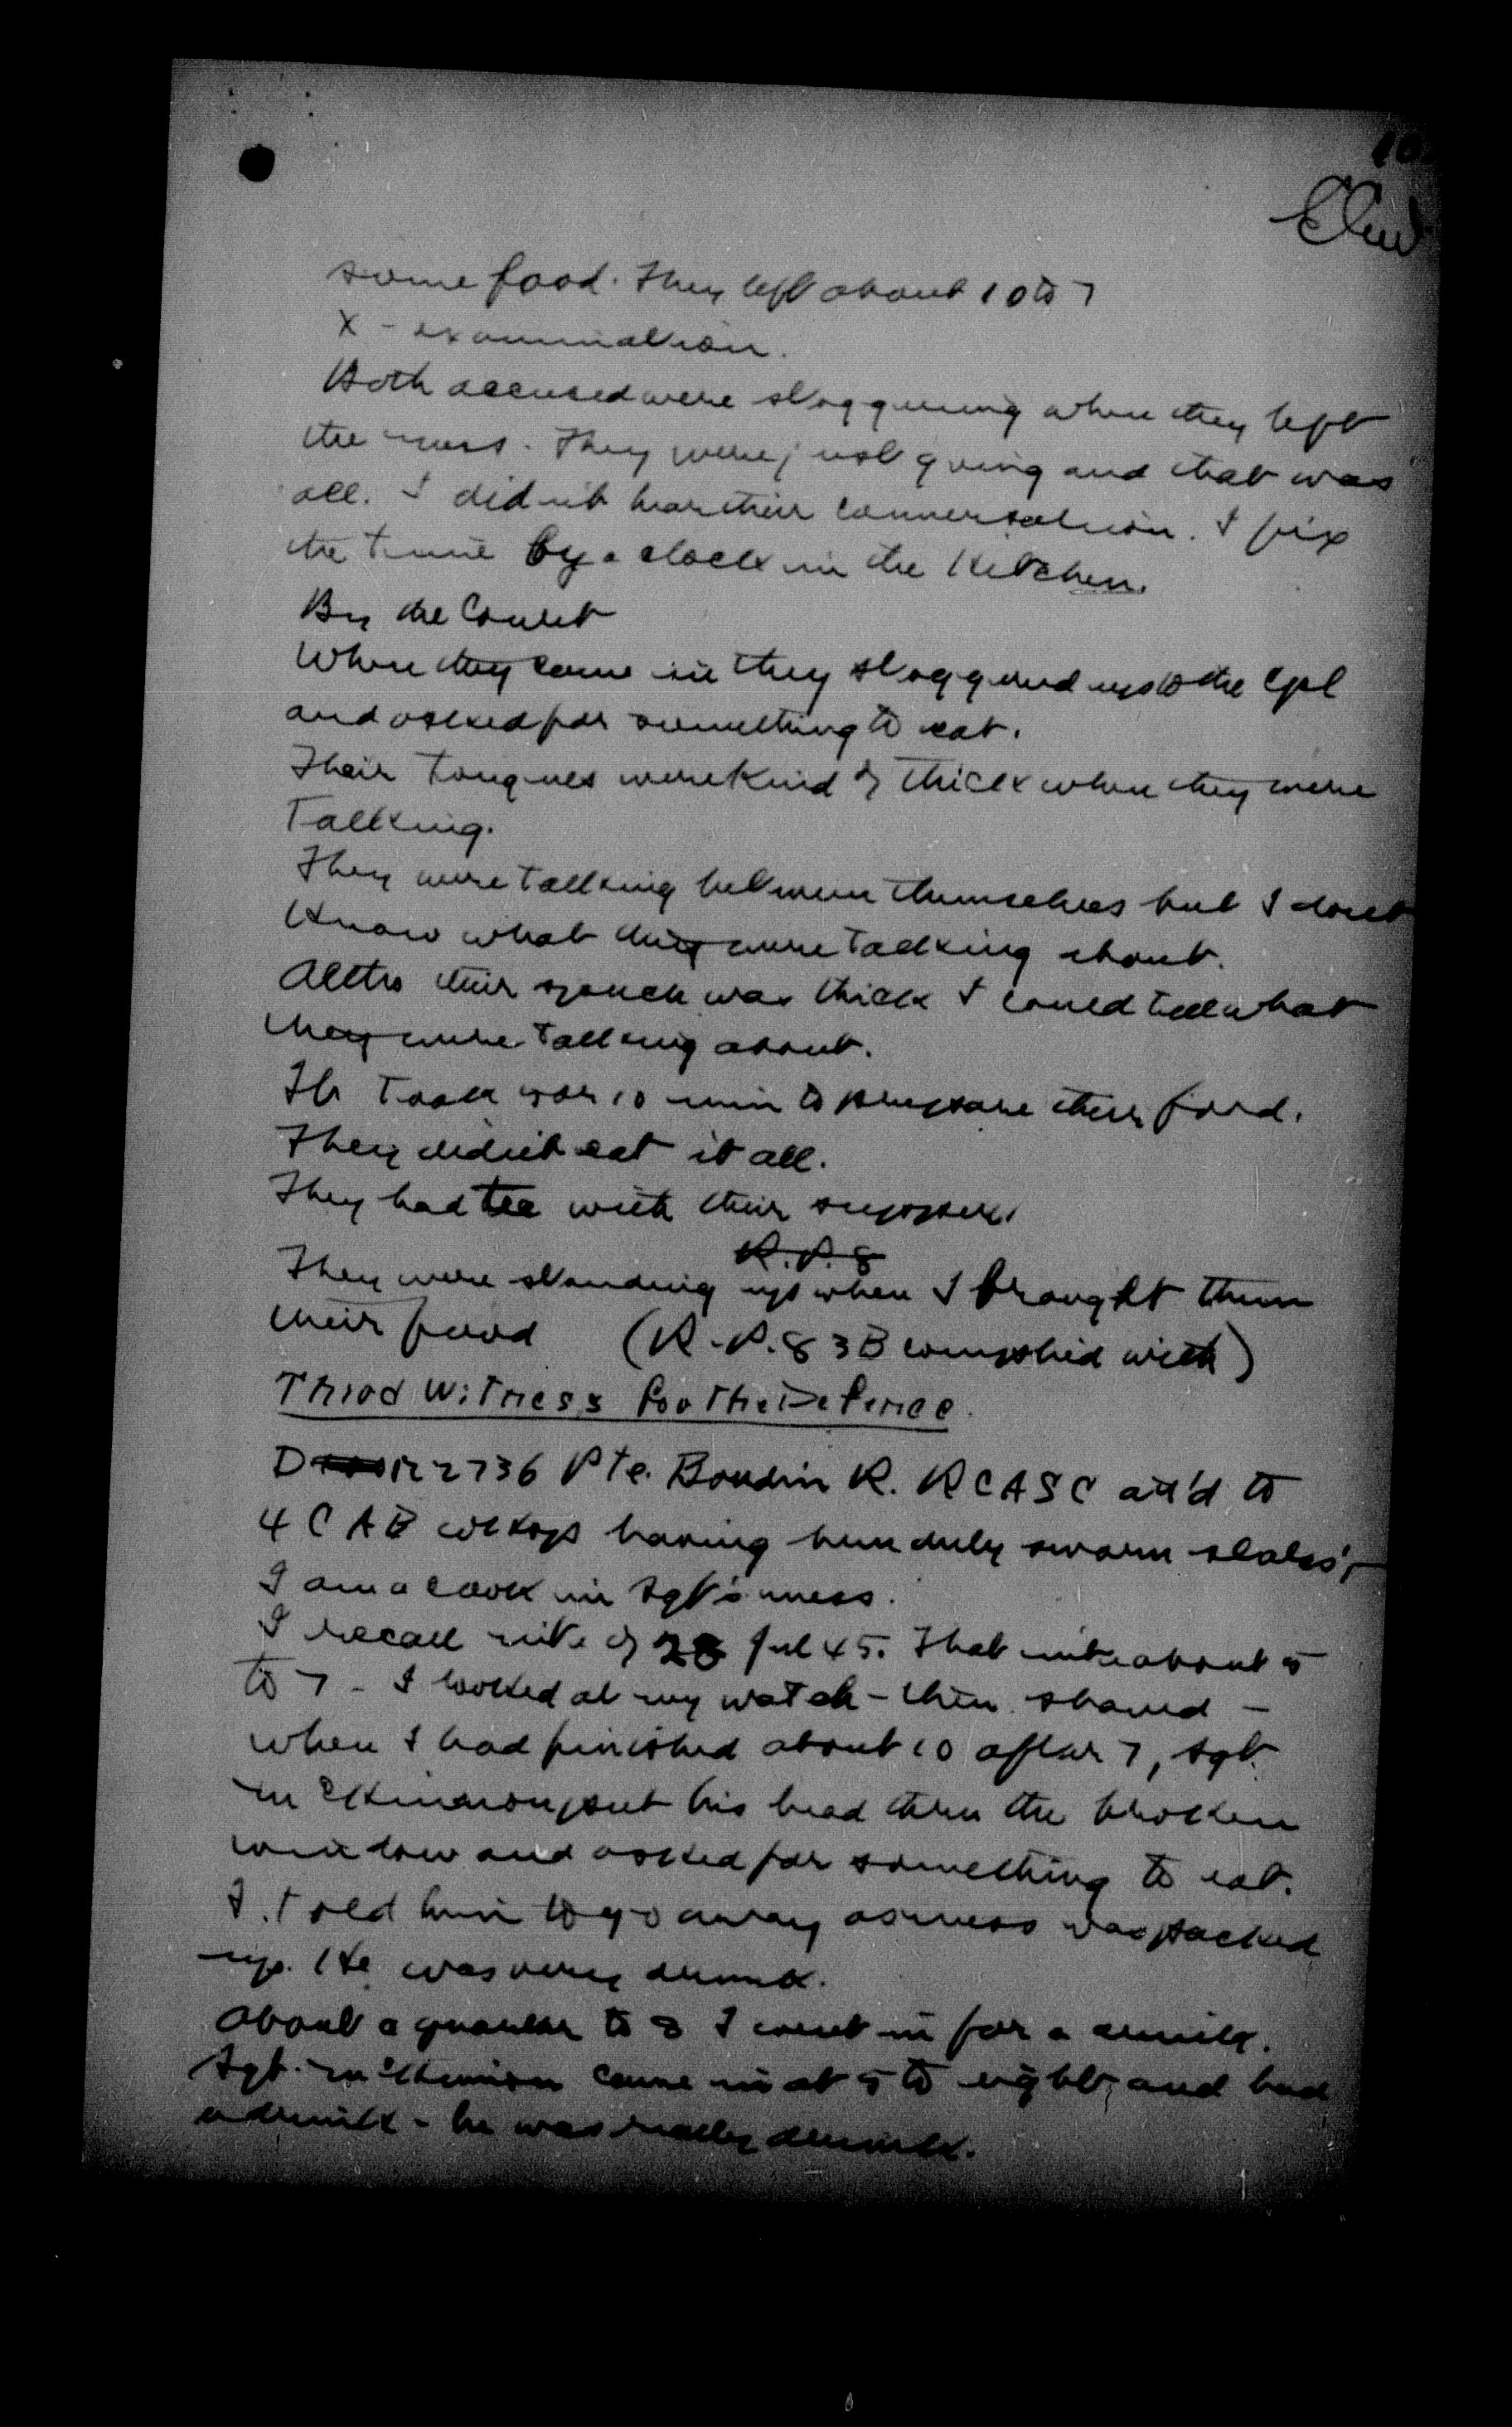 10
some food. They left about 10 to 7
X - examination.
Both accused were staggering when they left
the mess. They were just going and that was
all. I didn't hear their conversation. I fix
the time by a clock in the kitchen.
By the Court
When they came in they staggered up to the Cpl
and asked for something to eat.
Their tongues were kind of thick when they were
Talking.
They were talking between themselves but I don't
know what they were talking about.
Altho their speech was thick I could tell what
they were talking about.
It took 9 or 10 min to prepare their food.
They didn't eat it all.
They had tea with their supper.
R.P. 8
They were standing up when I brought them
their food (R.P. 83B complied with)
Third Witness for the Defence.
D 122736 Pte. Boudin R. RCASC att'd to
4 CAB wksps having been duly sworn states;-
I am a cook in Sgt's mess.
I recall nite of 28 Jul 45. That nite about 5
to 7 - I looked at my watch - then shaved -
when I had finished about 10 after 7, Sgt.
McKinnon put his head thru the broken
window and asked for something to eat.
I told him to go away as mess was packed
up. He was very drunk.
About a quarter to 8 I went in for a drink.
Sgt. McKinnon came in at 5 to eight, and had
a drink - he was really drunk.